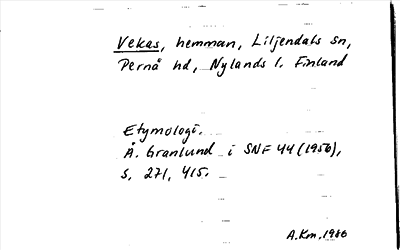 Vekas, hemman, Liljendals sn,
Pernå hd, Nylands l. Finland
Etymologi.
Å. Granlund i SNF 44 (1956),
s. 271, 415.
A.Km. 1986